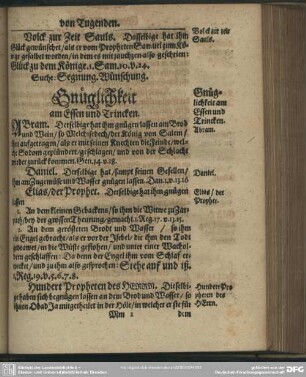 von Tugenden.
Volck zur Zeit Sauls. Dasselbige hat ihm
Glück gewünschet/als er vom Propheten Samuel zum Kö-
nige gesalbet worden/in dem es mit jauchzen also geschrien:
Glück zu dem Könige. 1. Sam. 10. v. 24.
Suche: Segnung. Wünschung.
Volck zur zeit
Sauls.
Gnüglichkeit
am Essen und Trincken.
Gnüg-
lichkeit am
Essen und
Trincken.
Abram.
ABram. Derselbige hat ihm gnügen lassen am Brod
und Wein/so Melchisedech/der König von Salem/
ihm aufgetragen/als er mit seinen Knechten die Feinde/wel-
che Sodom geplündert/geschlagen/und von der Schlacht
wieder zurück kommen. Gen. 14. v. 18.
Daniel. Derselbige hat/sampt seinen Gesellen/
ihm an Zugemüse und Wasser gnügen lassen. Dan. 1. v. 15. 16
Daniel.
Elias/der Prophet. Derselbige hat ihm gnügen
lassen
Elias/der
Prophet.
1. An dem kleinen Gebackens/so ihm die Witwe zu Zar-
path/bey der grossen Theurung/gemacht 1. Reg. 17. v. 13. 15.
2. An dem gerösteten Brodt und Wasser/so ihm
ein Engel gebracht/als er vor der Jesebel/die ihm den Todt
gedrewet/in die Wüsten geflohen/und unter einer Wachol-
dern geschlaffen: Da denn der Engel ihm vom Schlaf er-
wecket/und zu ihm also gesprochen: Stehe auf und iß.
1. Reg. 19. v. 5. 6. 7. 8.
Hundert Propheten des HERRN. Dieselbi-
ge haben sich begnügen lassen an dem Brod und Wasser/so
ihnen Obadja mitgetheilet in der Höle/in welcher er sie für
Hundert Pro-
pheten des
HErrn.
Mm 2
dem